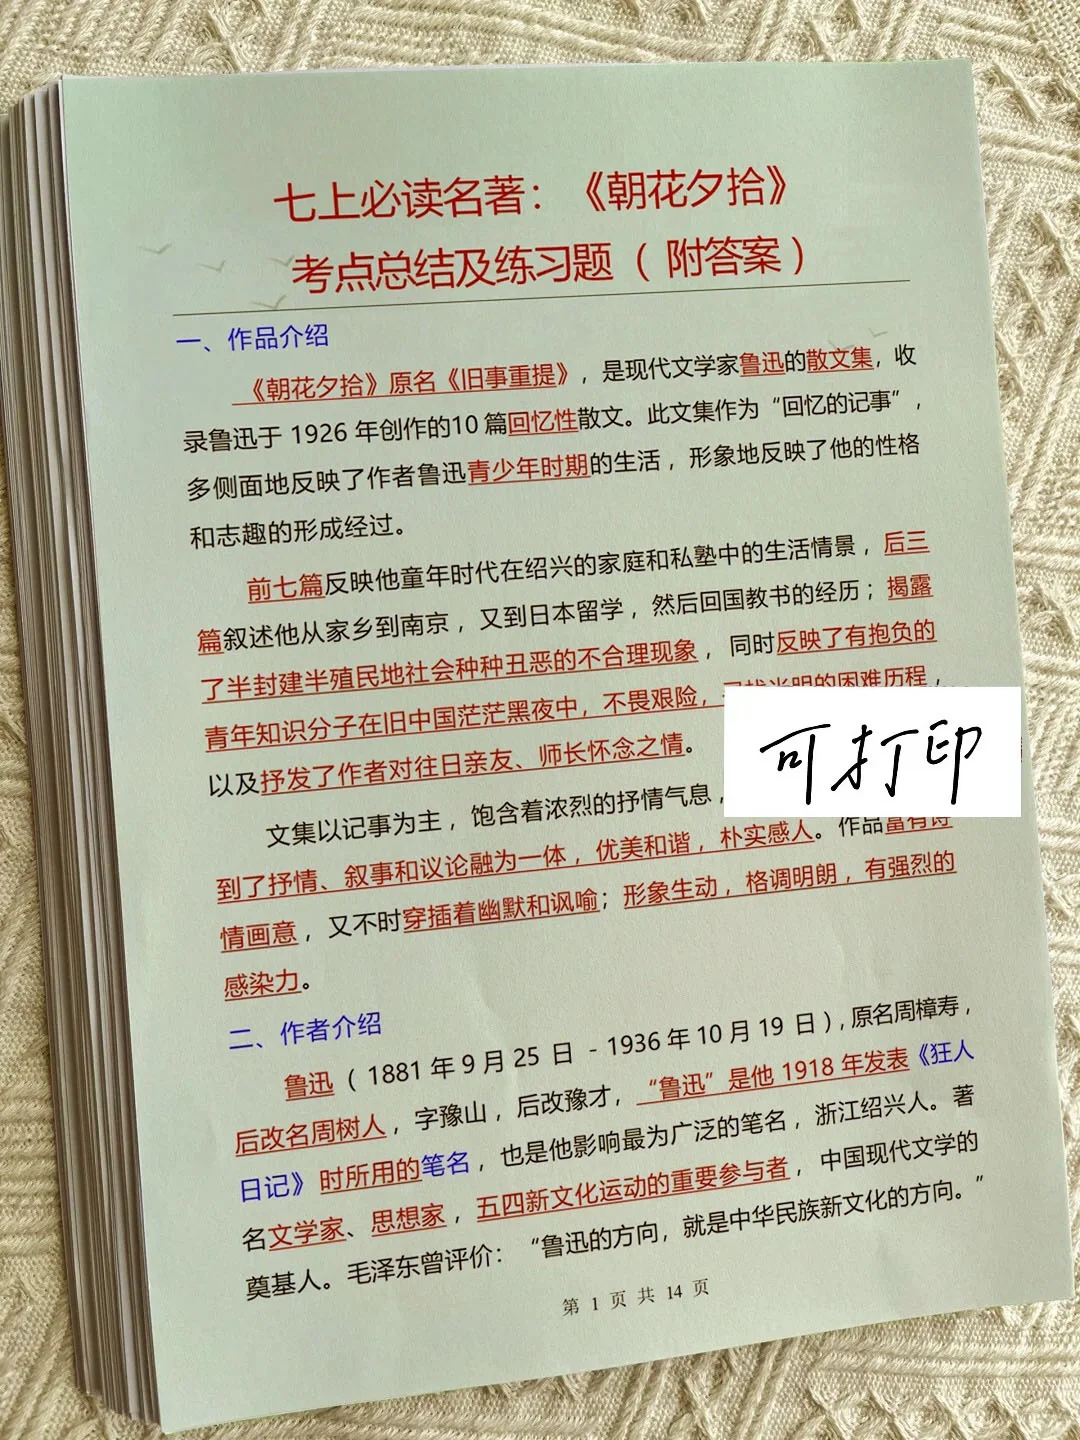 七上必读名著：《朝花夕拾》
考点总结及练习题（附答案）
一、作品介绍
《朝花夕拾》原名《旧事重提》，是现代文学家鲁迅的散文集，收
录鲁迅于 1926 年创作的10 篇回忆性散文。此文集作为“回忆的记事”，
多侧面地反映了作者鲁迅青少年时期的生活，形象地反映了他的性格
和志趣的形成经过。
前七篇反映他童年时代在绍兴的家庭和私塾中的生活情景，后三
篇叙述他从家乡到南京，又到日本留学，然后回国教书的经历；揭露
了半封建半殖民地社会种种丑恶的不合理现象，同时反映了有抱负的
青年知识分子在旧中国茫茫黑夜中，不畏艰险，寻找光明的困难历程，
以及抒发了作者对往日亲友、师长怀念之情。
可打印
文集以记事为主，饱含着浓烈的抒情气息，
到了抒情、叙事和议论融为一体，优美和谐，朴实感人。作品富有诗
情画意，又不时穿插着幽默和讽喻；形象生动，格调明朗，有强烈的
感染力。
二、作者介绍
鲁迅（1881 年 9 月 25 日 －1936 年 10 月 19 日），原名周樟寿，
后改名周树人，字豫山，后改豫才，“鲁迅”是他 1918 年发表《狂人
日记》时所用的笔名，也是他影响最为广泛的笔名，浙江绍兴人。著
名文学家、思想家，五四新文化运动的重要参与者，中国现代文学的
奠基人。毛泽东曾评价：“鲁迅的方向，就是中华民族新文化的方向。”
第 1 页 共 14 页